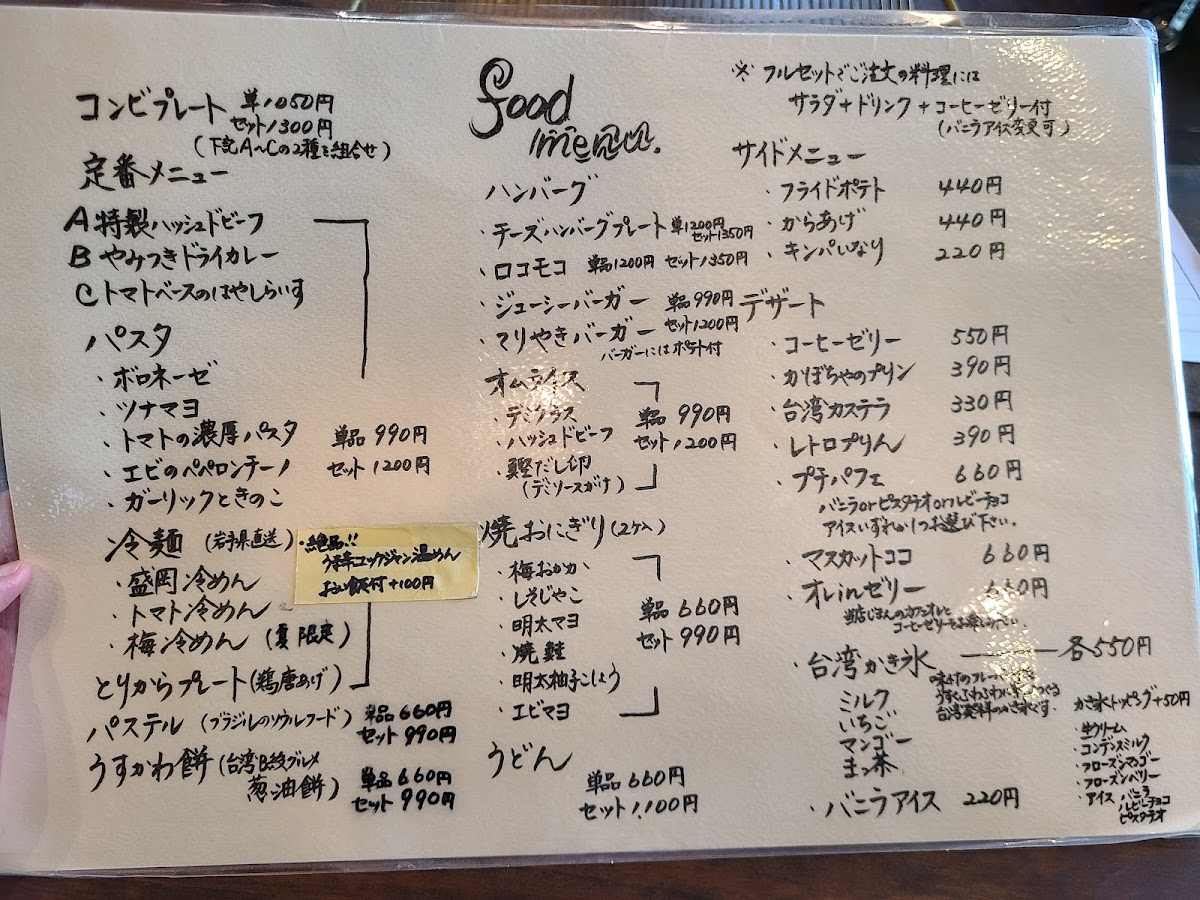 コンビプレート 単1050円
セット1300円
(下記A〜Cの2種を組合せ)
定番メニュー
A 特製ハッシュドビーフ
B やみつきドライカレー
C トマトベースのはやしらいす
パスタ
・ボロネーゼ
・ツナマヨ
・トマトの濃厚パスタ 単品 990円
・エビのペペロンチーノ セット 1200円
・ガーリックときのこ
冷麺 (岩手県直送)
・盛岡冷めん
・トマト冷めん
・梅冷めん (夏限定)
・絶品!!
コックジャン温めん
お山飯付 +100円
とりからプレート(鶏唐あげ)
パステル (ブラジルのソウルフード) 単品 660円
セット 990円
うすかわ餅 (台湾B級グルメ
葱油餅) 単品 660円
セット 990円
food
menu.
ハンバーグ
・チーズハンバーグプレート 単1200円
セット1350円
・ロコモコ 単品1200円 セット1350円
・ジューシーバーガー 単品 990円
・てりやきバーガー セット1200円
バーガーにはポテト付
オムライス
・デミグラス 単品 990円
・ハッシュドビーフ セット1200円
・鰹だし
(デミソースがけ)
焼おにぎり (2ヶ入)
・梅おかか
・しそじゃこ
・明太マヨ 単品 660円
・焼鮭 セット 990円
・明太柚子こしょう
・エビマヨ
うどん 単品 660円
セット1,100円
※ フルセットでご注文の料理には
サラダ+ドリンク+コーヒーゼリー付
(バニラアイス変更可)
サイドメニュー
・フライドポテト 440円
・からあげ 440円
・キンパいなり 220円
デザート
・コーヒーゼリー 550円
・かぼちゃのプリン 390円
・台湾カステラ 330円
・レトロプりん 390円
・プチパフェ 660円
バニラorピスタチオorルビーチョコ
アイスいずれか1つお選び下さい。
・マスカットココ 660円
・オレinゼリー 660円
当店じまんのカフェオレと
コーヒーゼリーをお楽しみ下さい。
・台湾かき氷 各550円
ミルク
いちご
マンゴー
まっ茶
かき氷トッピング+50円
・生クリーム
・コンデンスミルク
・フローズンマンゴー
・フローズンベリー
・アイス バニラ
ルビーチョコ
ピスタチオ
・バニラアイス 220円